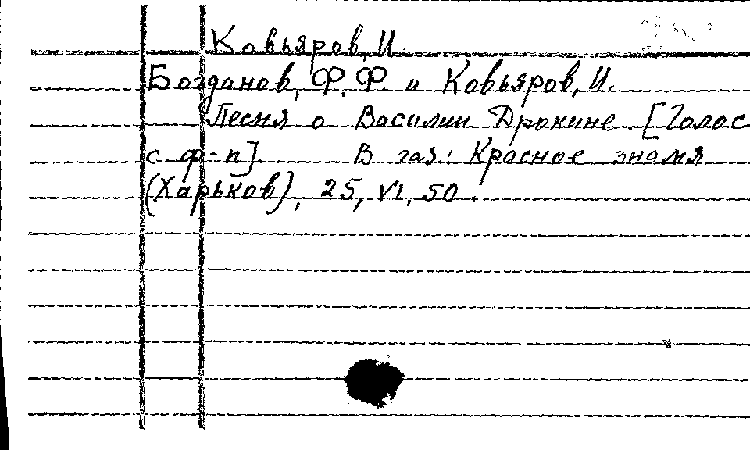 Ковьяров, И.
Богданов, Ф. Ф. и Ковьяров, И.
Песня о Василии Дрокине [Голос
с ф-п]. В газ: Красное знамя
(Харьков), 25, VI, 50.